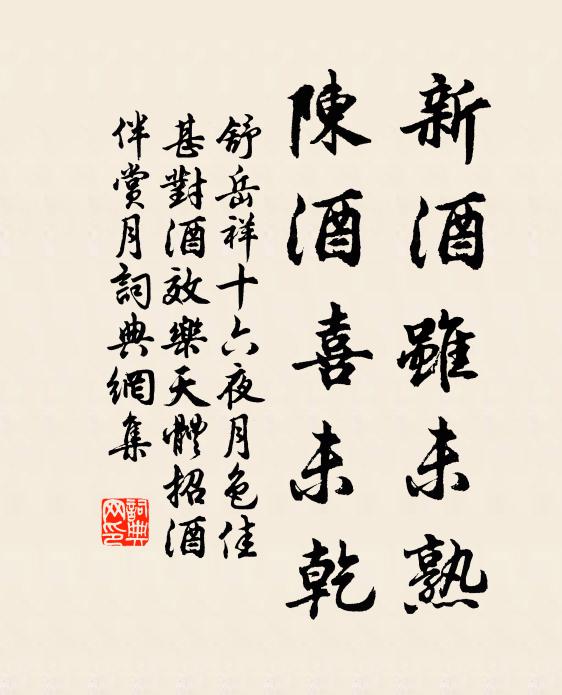 新酒雖未熟
陳酒喜未乾
舒岳祥十六夜月色佳
甚對酒效樂天體招酒
伴賞月詞典網集
詞典
网印